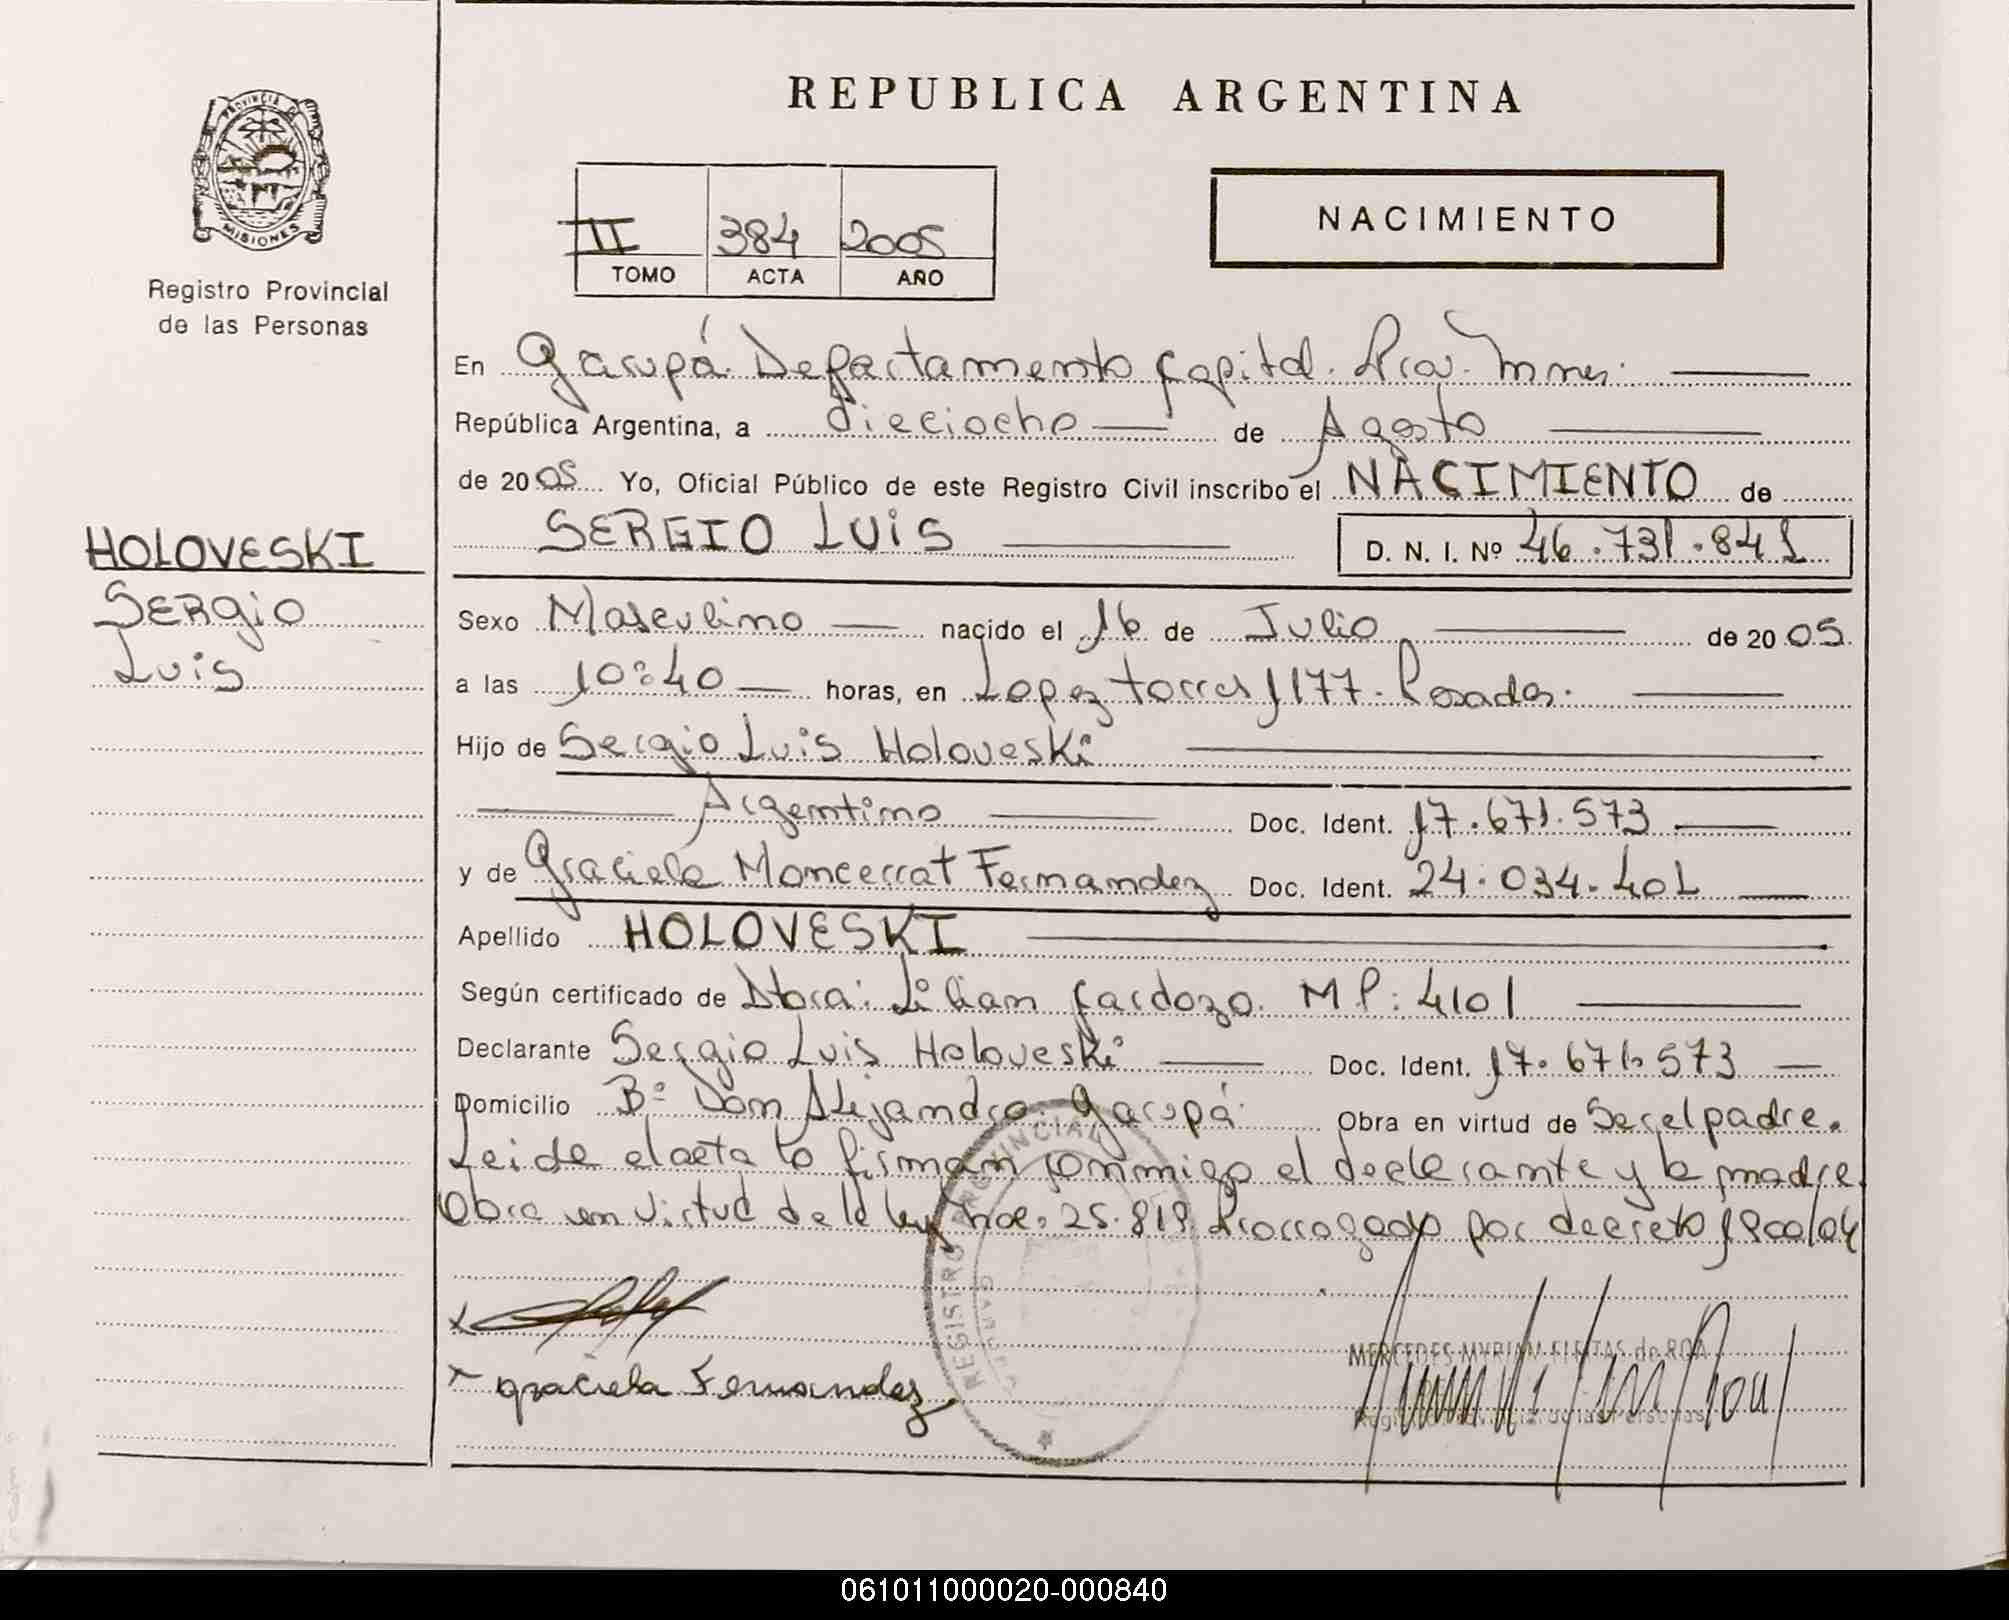 REPUBLICA ARGENTINA
PROVINCIA DE
MISIONES
Registro Provincial
de las Personas
II 384 2005
TOMO ACTA AÑO
NACIMIENTO
En Garupá. Departamento Capital. Prov. Mnes.
República Argentina, a dieciocho de Agosto
de 2005 Yo, Oficial Público de este Registro Civil inscribo el NACIMIENTO de
SERGIO LUIS D. N. I. Nº 46.731.841
HOLOVESKI
SERgiO
Luis
Sexo Masculino nacido el 16 de Julio de 2005
a las 10:40 horas, en Lopez torres 1177. Posadas.
Hijo de Sergio Luis Holoveski
Argentino Doc. Ident. 17.671.573
y de Graciela Moncerrat Fernandez Doc. Ident. 24.034.401
Apellido HOLOVESKI
Según certificado de Dtora: Lilian Cardozo. M P: 4101
Declarante Sergio Luis Holoveski Doc. Ident. 17.671.573
Domicilio Bº Don Alejandro. Garupá. Obra en virtud de Ser el padre.
Leida el acta la firman conmigo el declarante y la madre.
Obra en virtud de la ley nro. 25.819. Prorrogado por decreto 1800/04
REGISTRO PROVINCIAL
GARUPA
x graciela Fernandez
MERCEDES MYRIAM FLEITAS de ROA
Registro Provincial de las Personas
061011000020-000840